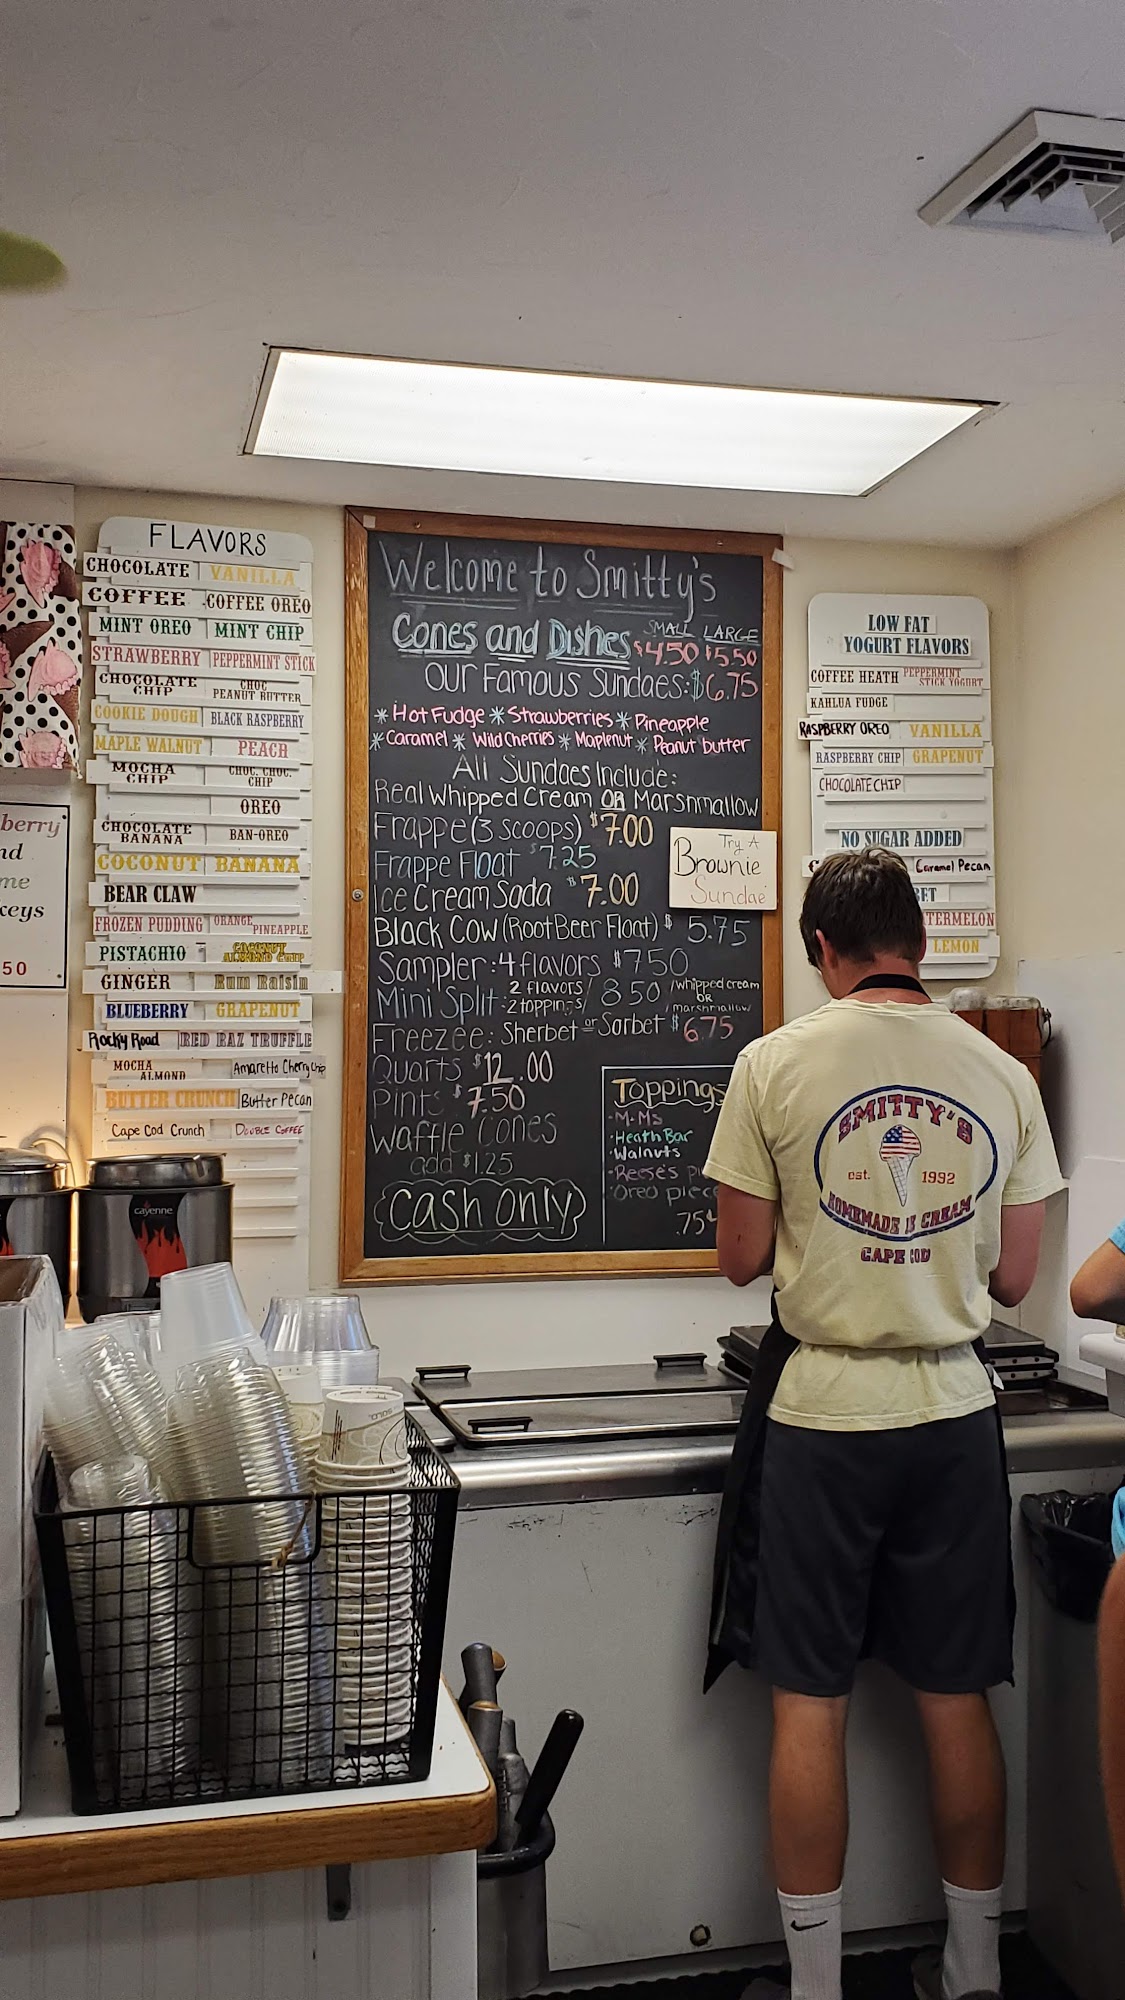 berry
nd
me
keys
50
FLAVORS
CHOCOLATE VANILLA
COFFEE COFFEE OREO
MINT OREO MINT CHIP
STRAWBERRY PEPPERMINT STICK
CHOCOLATE CHIP CHOC PEANUT BUTTER
COOKIE DOUGH BLACK RASPBERRY
MAPLE WALNUT PEACH
MOCHA CHIP CHOC. CHOC. CHIP
OREO
CHOCOLATE BANANA BAN-OREO
COCONUT BANANA
BEAR CLAW
FROZEN PUDDING ORANGE PINEAPPLE
PISTACHIO COCONUT ALMOND CHIP
GINGER Rum Raisin
BLUEBERRY GRAPENUT
Rocky Road RED RAZ TRUFFLE
MOCHA ALMOND Amaretto Cherry Chip
BUTTER CRUNCH Butter Pecan
Cape Cod Crunch DOUBLE COFFEE
cayenne
Welcome to Smitty's
Cones and Dishes SMALL $4.50 LARGE $5.50
Our Famous Sundaes: $6.75
* Hot Fudge * Strawberries * Pineapple
* Caramel * Wild Cherries * Maplenut * Peanut butter
All Sundaes Include:
Real Whipped Cream OR Marshmallow
Frappe (3 scoops) $7.00
Frappe Float $7.25
Ice Cream Soda $7.00
Black Cow (Root Beer Float) $5.75
Sampler: 4 flavors $7.50
Mini Split: 2 flavors/ 2 toppings/ 8.50 /whipped cream OR /marshmallow
Freezee: Sherbet or Sorbet $6.75
Quarts $12.00
Pints $7.50
Waffle Cones
add $1.25
Cash only
Try A
Brownie
Sundae
Toppings
·M-Ms
·Heath Bar
·Walnuts
·Reese's
·Oreo piece
.75¢
LOW FAT
YOGURT FLAVORS
COFFEE HEATH PEPPERMINT STICK YOGURT
KAHLUA FUDGE
RASPBERRY OREO VANILLA
RASPBERRY CHIP GRAPENUT
CHOCOLATE CHIP
NO SUGAR ADDED
Caramel Pecan
BET
TERMELON
LEMON
SMITTY'S
est. 1992
HOMEMADE ICE CREAM
CAPE COD
SOLO